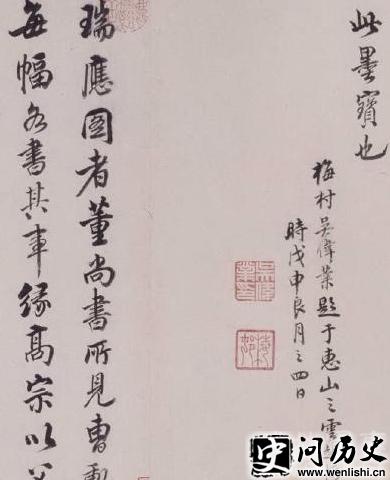 此墨寶也
梅村吳偉業題于惠山之雲
時戊申良月之四日
瑞應圖者董尚書所見曹
每幅各書其事緣高宗以
问历史
www.wenlishi.cn